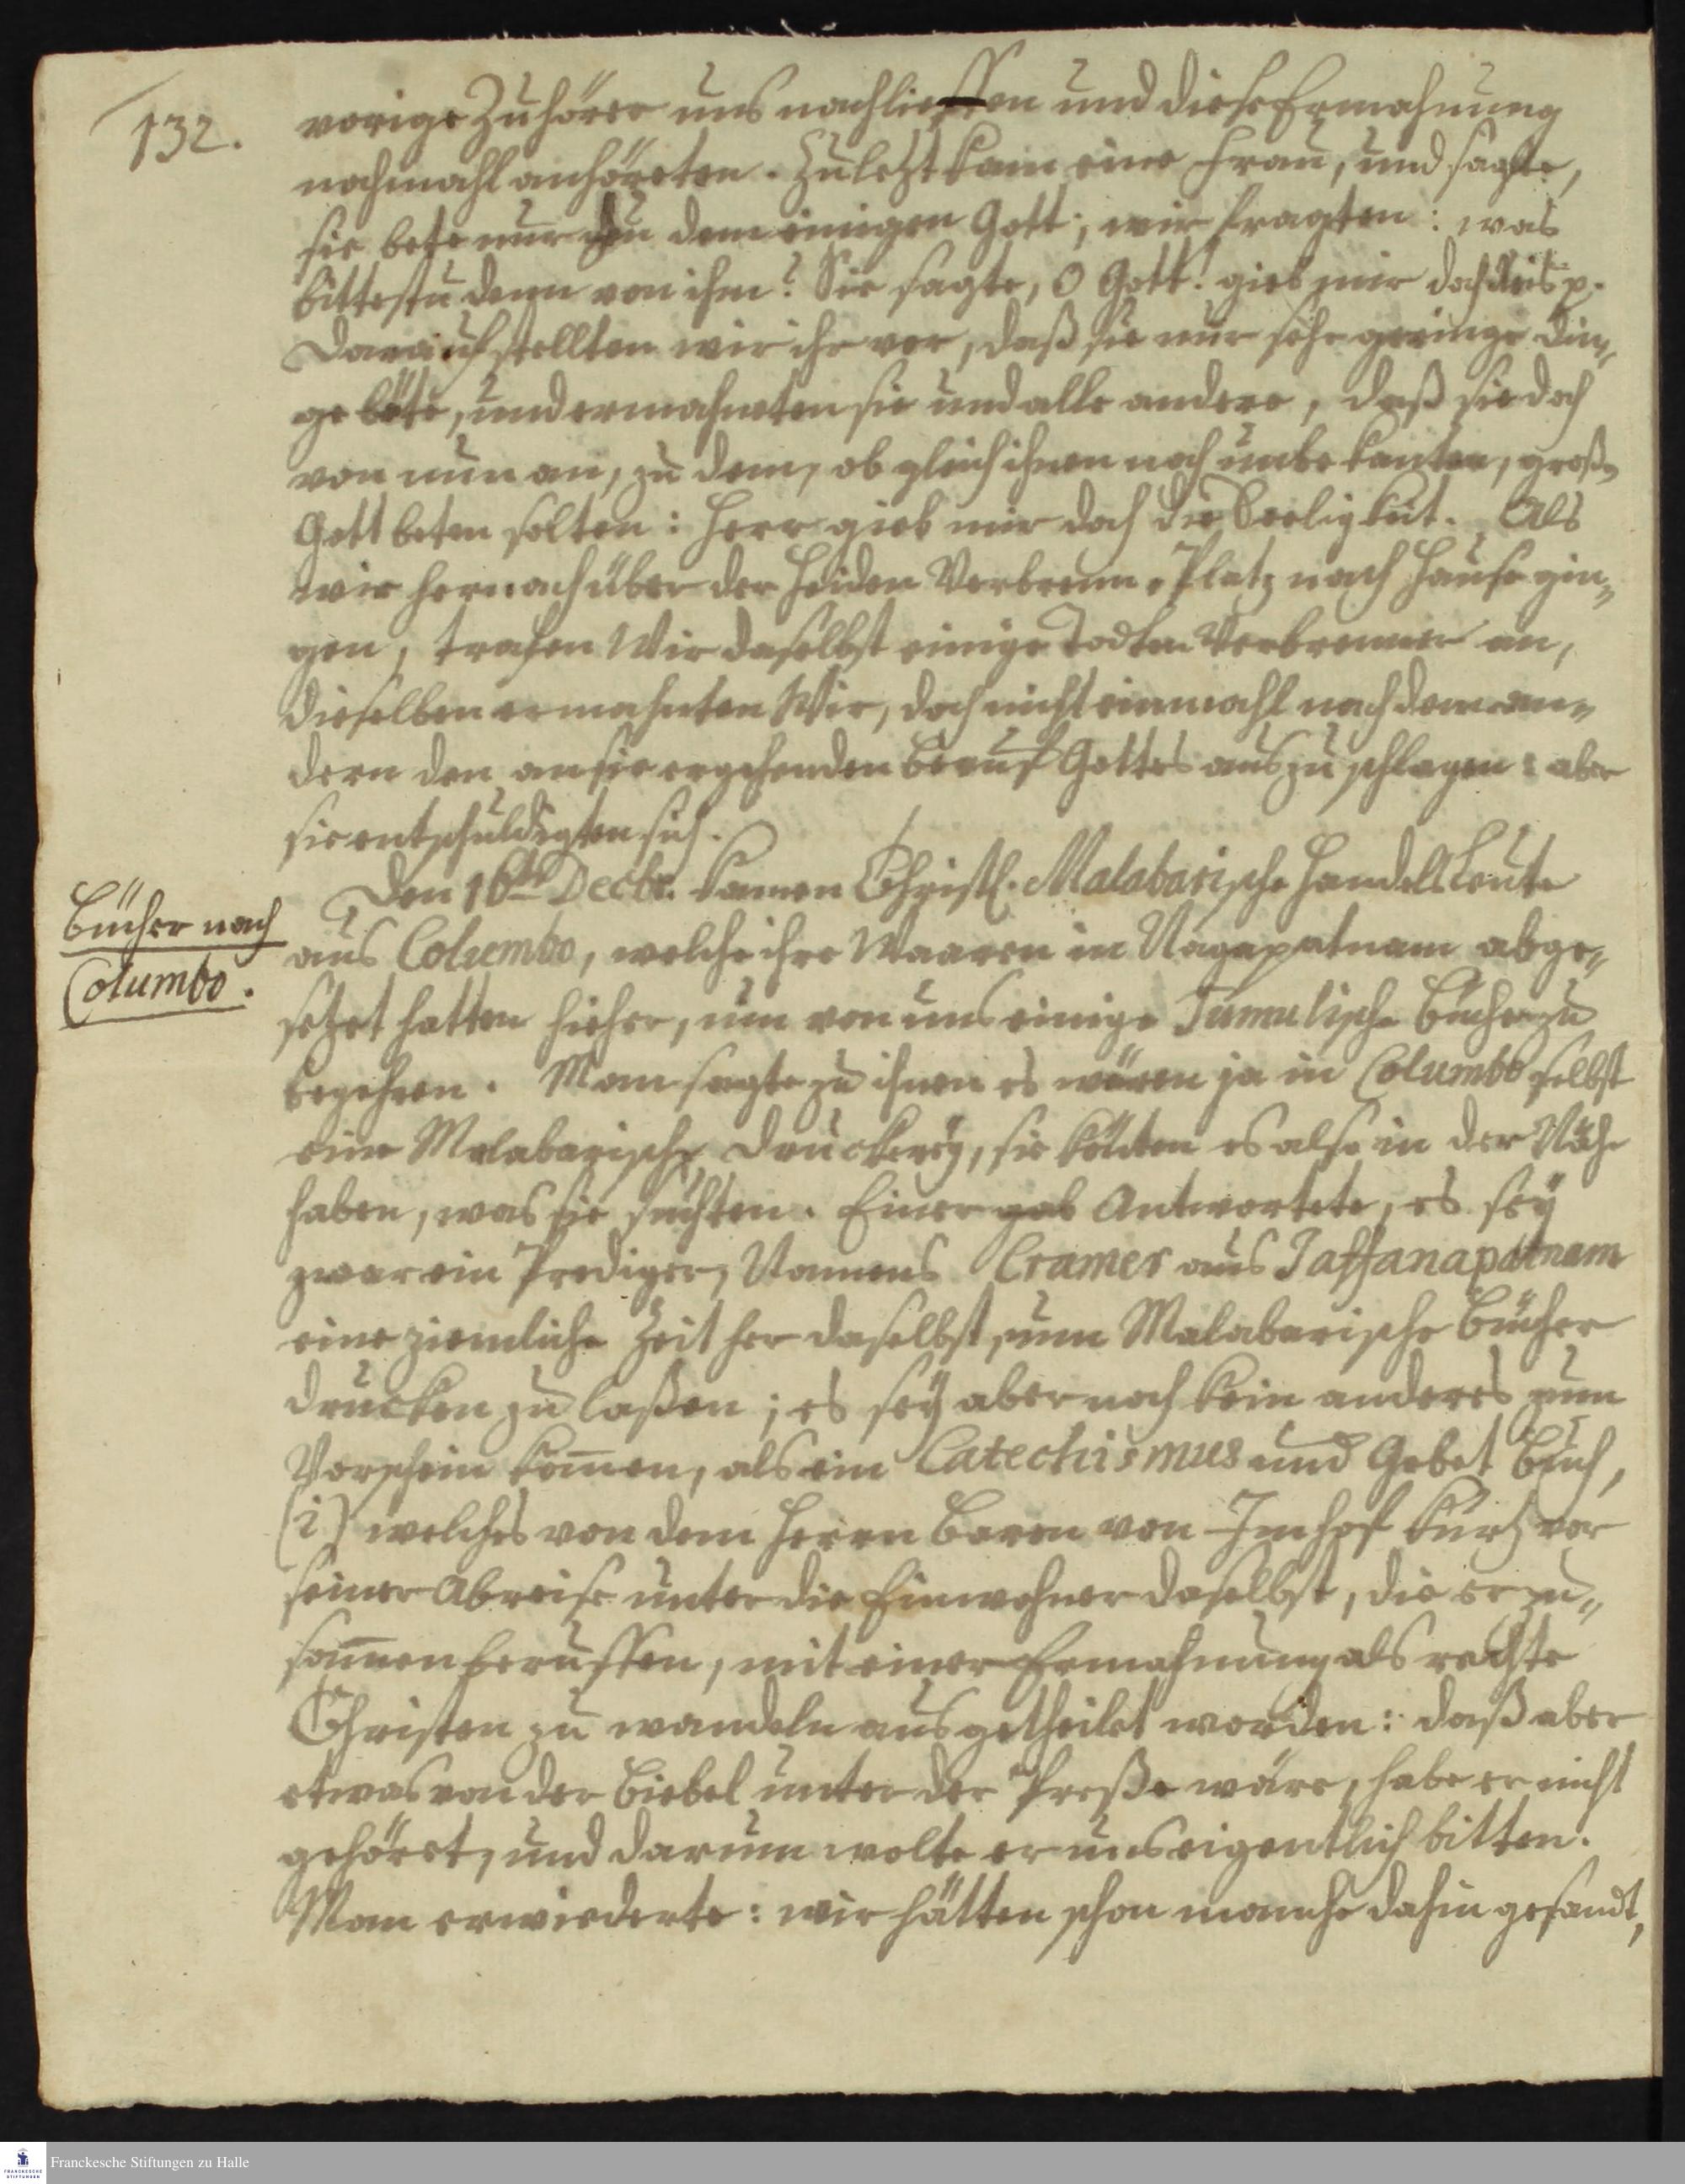 132.
vorige Zuhörer uns nachlieffen und diese Ermahnung
nochmahl anhöreten. Zuletzt kam eine Frau, und sagte,
sie bete nur zu dem einigen Gott; wir fragten: was
bittestu denn von ihm? Sie sagte, O Gott! gieb mir doch dis p.
Darauf stellten wir ihr vor, daß sie nur sehr geringe Din„
ge bäte, und ermahneten sie und alle andere, daß sie doch
von nun an, zu dem, ob gleich ihnen noch unbekanten, großen
Gott beten solten: Herr gieb mir doch die Seeligkeit. Als
wir hernach über der Heiden Verbrenn-Platz nach Hause gin„
gen, trafen Wir daselbst einige Todten Verbrenner an,
dieselben ermahnten Wir, doch nicht einmahl nach dem an„
dern den an sie ergehenden Beruf Gottes auszuschlagen: aber
sie entschuldigten sich.
Den 16ten Decbr. kamen Christl. Malabarische Handelsleute
Bücher nach
Columbo.
aus Columbo, welche ihre Waaren in Nagapatnam abge„
setzet hatten hieher, um von uns einige Tamulische Bücher zu
begehren. Man sagte zu ihnen es wären ja in Columbo selbst
eine Malabarische Druckerey, sie könten es also in der Nähe
haben, was sie suchten. Einer gab Antwortete, es sey
zwar ein Prediger, Namens Cramer aus Jaffanapatnam
eine ziemliche Zeit her daselbst, um Malabarische Bücher
drucken zu laßen; es sey aber noch kein anderes zum
Vorschein kom̄en, als ein Catechismus und Gebet Buch,
(i) welches von dem Herrn Baron von Imhof kurtz vor
seiner Abreise unter die Einwohner daselbst, die er zu„
sam̄en beruffen, mit einer Ermahnung als rechte
Christen zu wandeln ausgetheilet worden: daß aber
etwas von der Biebel unter der Preße wäre, habe er nicht
gehöret, und darum wolte er uns eigentlich bitten.
Man erwiederte: wir hätten schon manche dahin gesandt,
Franckesche Stiftungen zu Halle